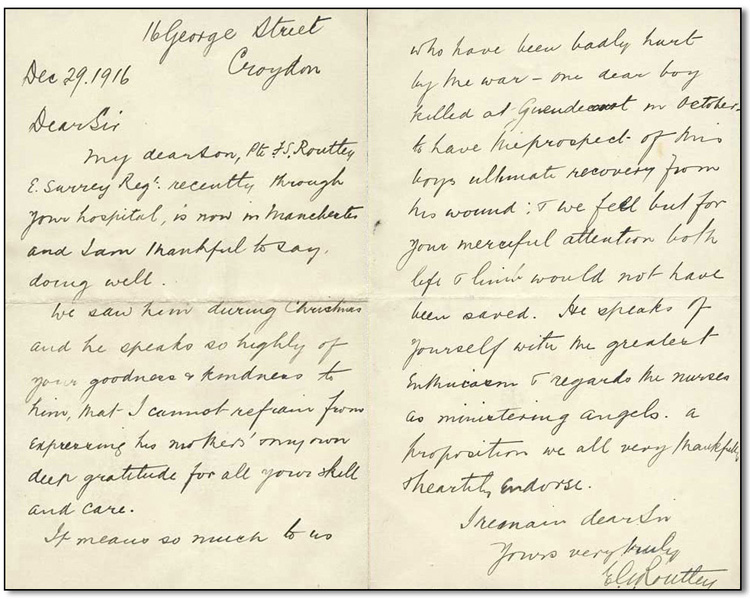 16 George Street
Croydon
Dec 29. 1916
Dear Sir
My dear son, Pte F.S. Routley
E. Surrey Regt. recently through
your hospital, is now in Manchester
and I am thankful to say,
doing well.
We saw him during Christmas
and he speaks so highly of
your goodness & kindness to
him, that I cannot refrain from
expressing his mothers' & my own
deep gratitude for all your skill
and care.
It means so much to us
who have been badly hurt
by the war - one dear boy
killed at Gueudecourt in October -
to have the prospect of this
boys ultimate recovery from
his wound: & we feel but for
your merciful attention both
life & limb would not have
been saved. He speaks of
yourself with the greatest
Enthusiasm & regards the nurses
as ministering angels. a
proposition we all very thankfully
& heartily Endorse.
I remain dear Sir
Yours very truly
Routley